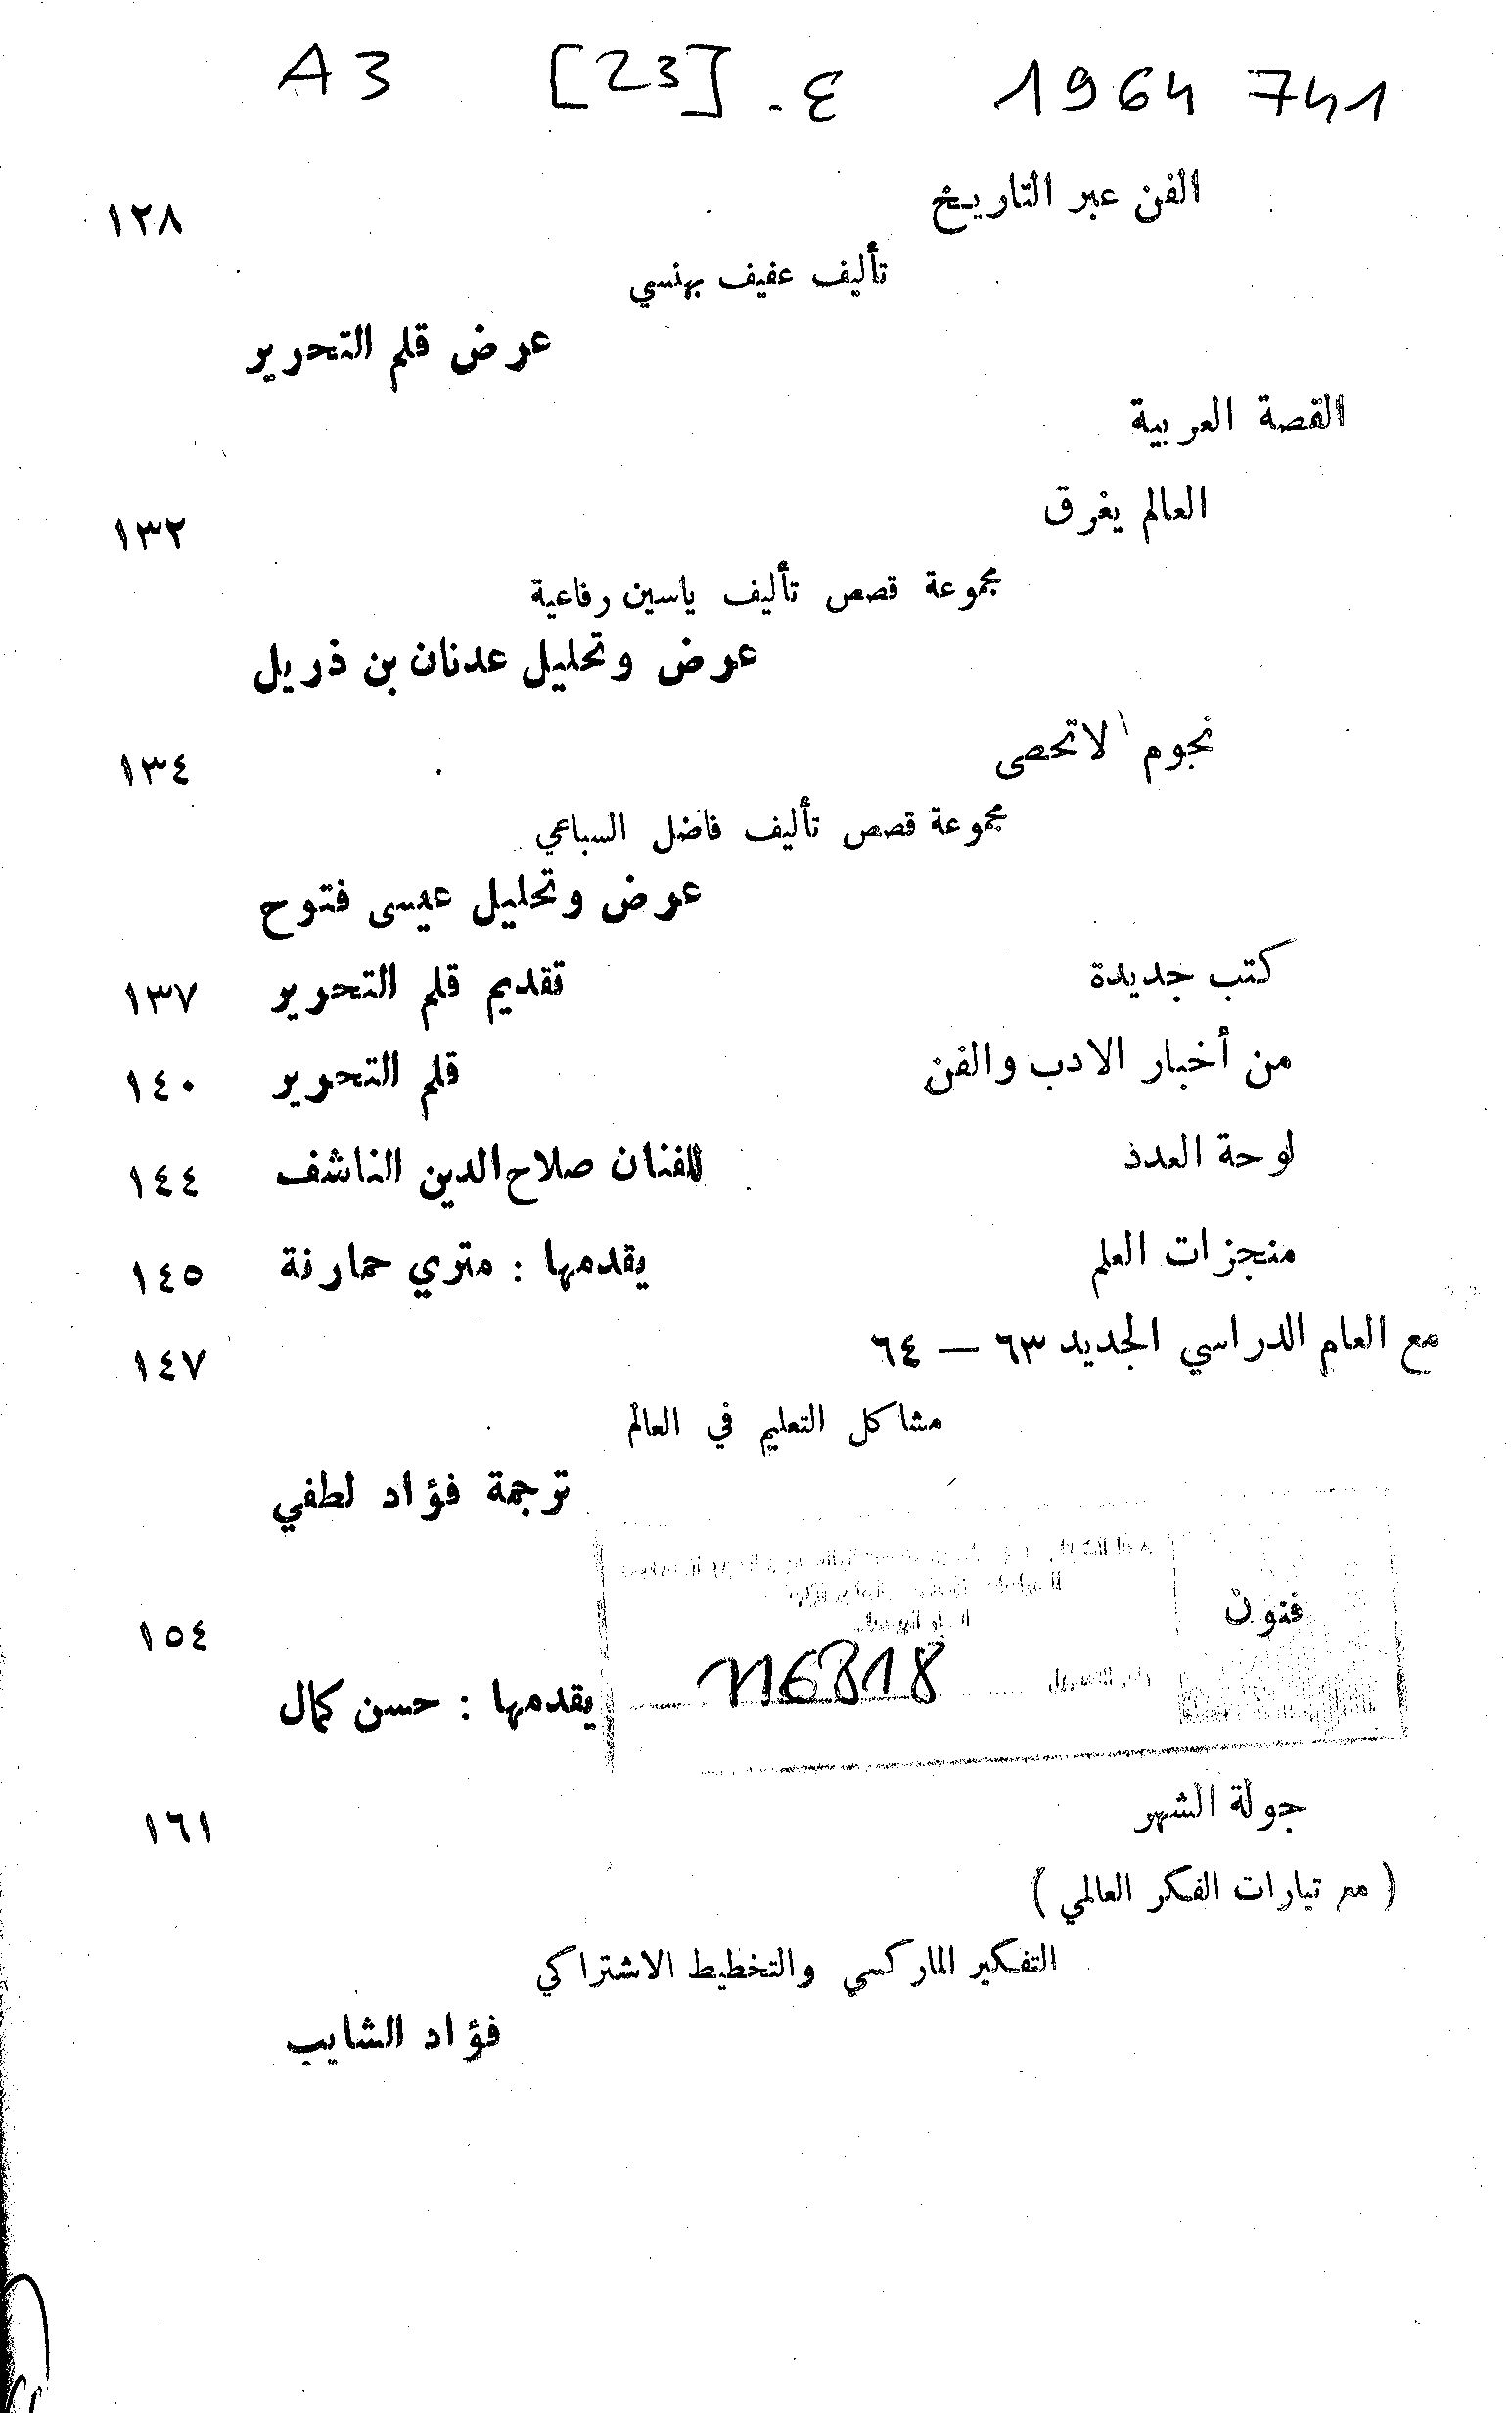 A3 [23] .ع 1964 741
الفن عبر التاريخ ١٢٨
تأليف عفيف بهنسي
عرض قلم التحرير
القصة العربية
العالم يغرق ١٣٢
مجموعة قصص تأليف ياسين رفاعية
عرض وتحليل عدنان بن ذريل
نجوم لاتحصى ١٣٤
مجموعة قصص تأليف فاضل السباعي
عرض وتحليل عيسى فتوح
كتب جديدة تقديم قلم التحرير ١٣٧
من أخبار الادب والفن قلم التحرير ١٤٠
لوحة العدد للفنان صلاح الدين الناشف ١٤٤
منجزات العلم يقدمها : متري حمارنة ١٤٥
مع العام الدراسي الجديد ٦٣ — ٦٤ ١٤٧
مشاكل التعليم في العالم
ترجمة فؤاد لطفي
فنون ١٥٤
116318
يقدمها : حسن كمال
جولة الشهر ١٦١
( مع تيارات الفكر العالمي )
التفكير الماركسي والتخطيط الاشتراكي
فؤاد الشايب